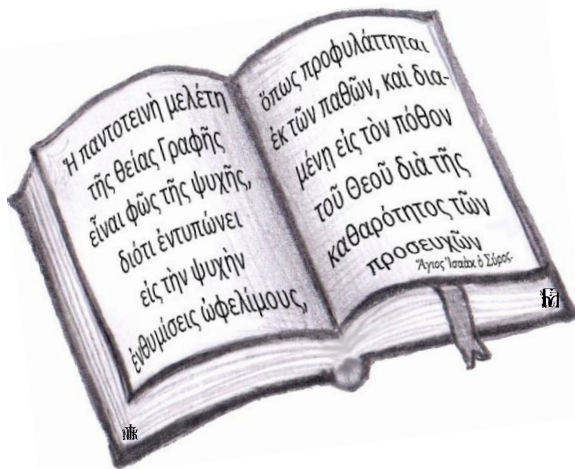 Ἡ παντοτεινὴ μελέτη
τῆς θείας Γραφῆς
εἶναι φῶς τῆς ψυχῆς,
διότι ἐντυπώνει
εἰς τὴν ψυχὴν
ἐνθυμίσεις ὠφελίμους,
ὅπως προφυλάττηται
ἐκ τῶν παθῶν, καὶ δια-
μένη εἰς τὸν πόθον
τοῦ Θεοῦ διὰ τῆς
καθαρότητος τῶν
προσευχῶν
Ἅγιος Ἰσαὰκ ὁ Σύρος.